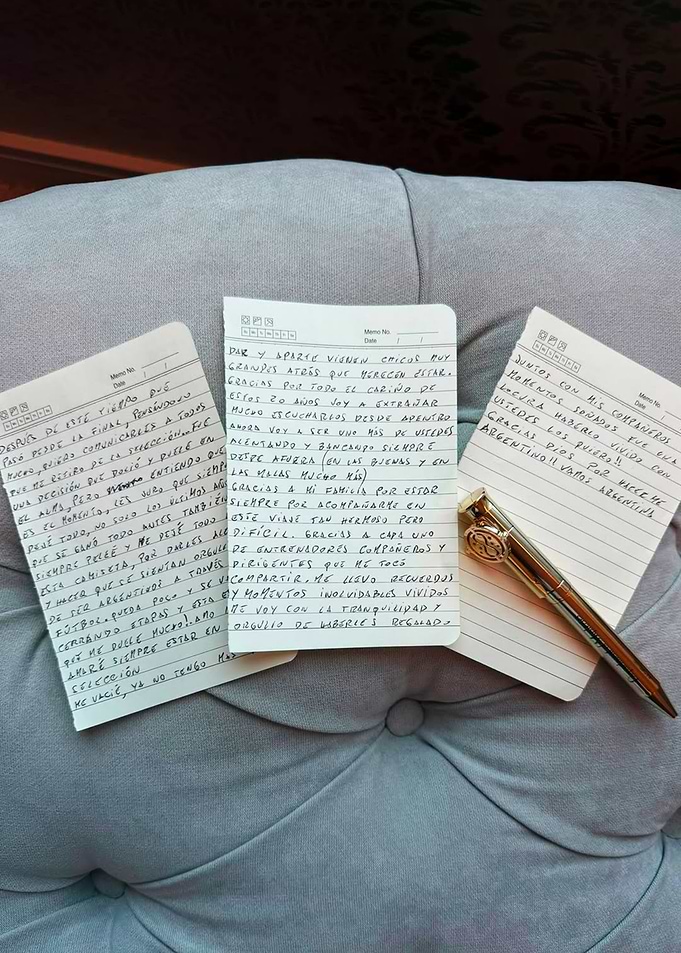 Memo No.
Date / /
DESPUES DE ESTE TIEMPO QUE
PASÓ DESDE LA FINAL, PENSÁNDOLO
MUCHO, QUIERO COMUNICARLES A TODOS
QUE ME RETIRO DE LA SELECCIÓN. FUE
UNA DECISIÓN QUE DOLIÓ Y DUELE EN
EL ALMA, PERO ENTIENDO QUE
ES EL MOMENTO, LES JURO QUE SIEMPRE
DEJÉ TODO, NO SOLO LOS ÚLTIMOS AÑOS
QUE SE GANÓ TODO ANTES TAMBIÉN
SIEMPRE PELEÉ Y ME DEJÉ TODO
ESTA CAMISETA, POR DARLES ALE
Y HACER QUE SE SIENTAN ORGULL
DE SER ARGENTINOS A TRAVÉS
FÚTBOL. QUEDA POCO Y SE VA
CERRANDO ETAPAS Y ESTA E
QUE ME DUELE MUCHO! AMO
AMARÉ SIEMPRE ESTAR EN
SELECCIÓN
ME VACIÉ, YA NO TENGO MÁS
Memo No.
Date / /
DAR Y APARTE VIENEN CHICOS MUY
GRANDES ATRÁS QUE MERECEN ESTAR.
GRACIAS POR TODO EL CARIÑO DE
ESTOS 20 AÑOS VOY A EXTRAÑAR
MUCHO ESCUCHARLOS DESDE ADENTRO
AHORA VOY A SER UNO MÁS DE USTEDES
ALENTANDO Y BANCANDO SIEMPRE
DESDE AFUERA (EN LAS BUENAS Y EN
LAS MALAS MUCHO MÁS)
GRACIAS A MI FAMILIA POR ESTAR
SIEMPRE POR ACOMPAÑARME EN
ESTE VIAJE TAN HERMOSO PERO
DIFÍCIL. GRACIAS A CADA UNO
DE ENTRENADORES COMPAÑEROS Y
DIRIGENTES QUE ME TOCÓ
COMPARTIR, ME LLEVO RECUERDOS
Y MOMENTOS INOLVIDABLES VIVIDOS
ME VOY CON LA TRANQUILIDAD Y
ORGULLO DE HABERLES REGALADO
Memo No.
Date /
JUNTOS CON MIS COMPAÑEROS
MOMENTOS SOÑADOS FUE UNA
LOCURA HABERLO VIVIDO CON
USTEDES LOS QUIERO!!
GRACIAS DIOS POR HACERME
ARGENTINO!! VAMOS ARGENTINA